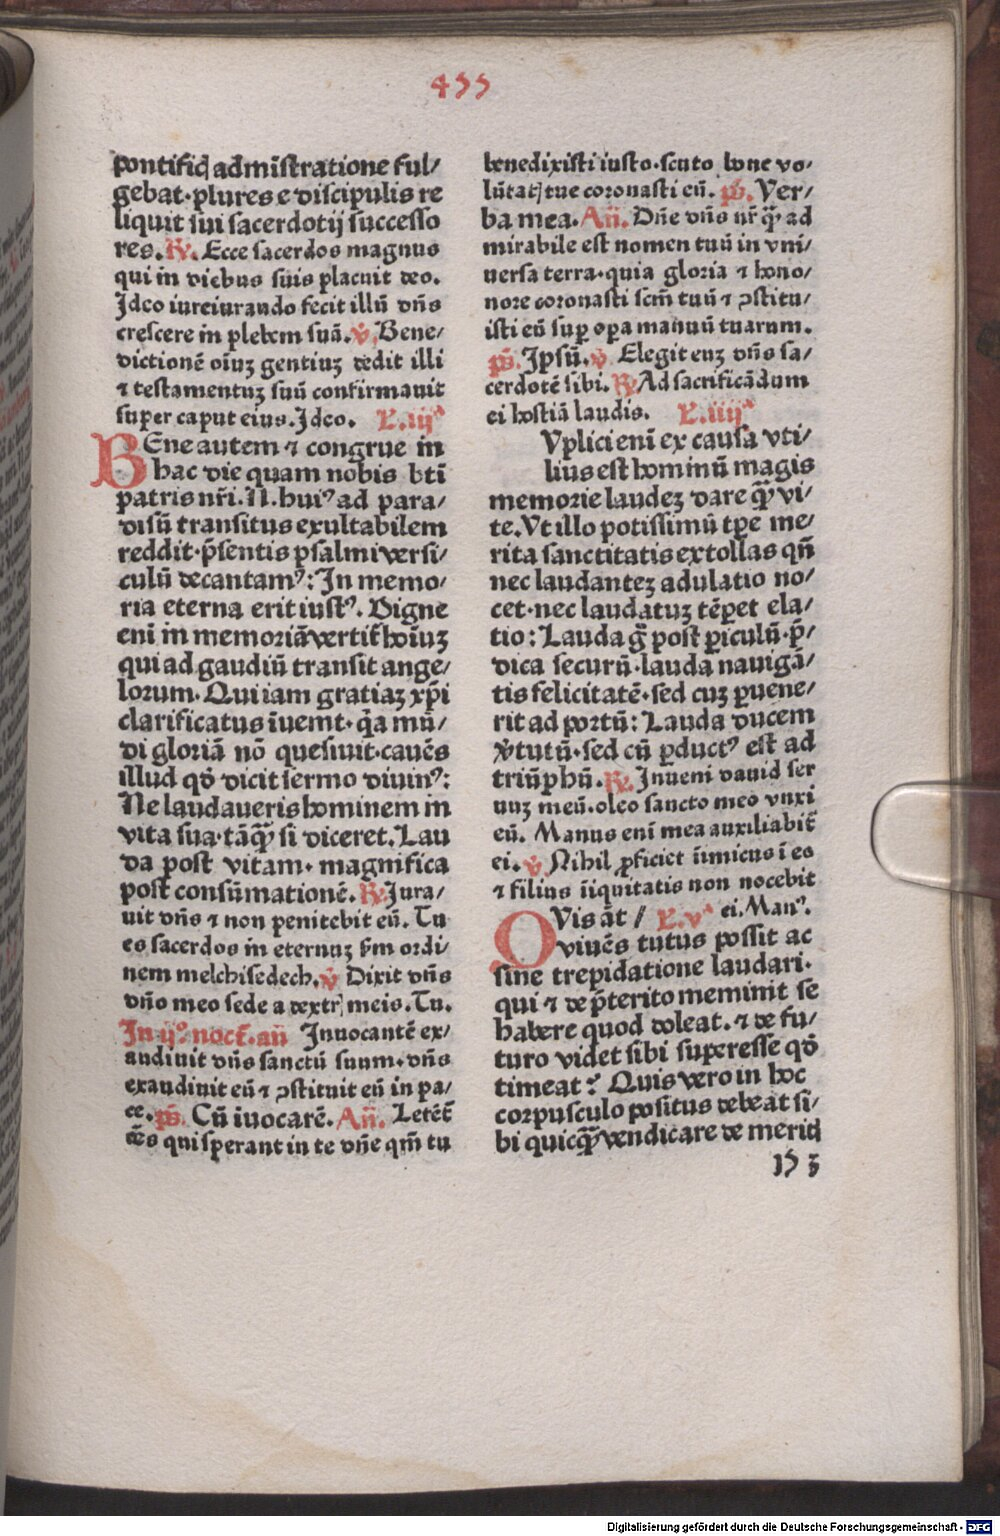 455
pontificꝭ admĩstratione ful⸗
gebat·plures e discipulis re
liquit sui sacerdotij successo
res. ℟. Ecce sacerdos magnus
qui in diebus suis placuit deo.
Ideo iureiurando fecit illũ dñs
crescere in plebem suã. ℣. Bene⸗
dictionẽ oĩuꝫ gentiuꝫ dedit illi
⁊ testamentuꝫ suũ confirmauit
super caput eius. Ideo. L.iijᵃ
BEne autem ⁊ congrue in
hac die quam nobis bti̅
patris nr̃i.N.huiꝰ ad para⸗
disũ transitus exultabilem
reddit·p̃sentis psalmi versi⸗
culũ decantamꝰ: In memo⸗
ria eterna erit iustꝰ. Digne
eni̅ in memoriã vertit̃ hoĩuꝫ
qui ad gaudiũ transit ange⸗
lorum. Qui iam gratiaꝫ xp̃i
clarificatus ĩuemt·q̃a mũ⸗
di gloriã nõ quesiuit·cauẽs
illud qď dicit sermo diuinꝰ:
Ne laudaueris hominem in
vita sua·tãꝙ̃ si diceret. Lau
da post vitam· magnifica
post consũmationẽ. ℟. Iura⸗
uit dñs ⁊ non penitebit eũ. Tu
es sacerdos in eternuꝫ ẜm ordi⸗
nem melchisedech. ℣. Dixit dñs
dño meo sede a dextrꝭ meis. Tu.
In ijº noct̃·añ Inuocantẽ ex⸗
audiuit dñs sanctũ suum·dñs
exaudiuit eũ ⁊ ꝯstituit eũ in pa⸗
ce. p̃s. Cũ iuocarẽ. Añ. Letẽt̃
oẽs qui sperant in te dñe qm̃ tu
benedixisti iusto·scuto bone vo⸗
lũtatꝭ tue coronasti eũ. p̃s. Ver⸗
ba mea. Añ. Dñe dñs nr̃ ꝙ̃ ad
mirabile est nomen tuũ in vni⸗
uersa terra·quia gloria ⁊ hono⸗
nore coronasti scm̃ tuũ ⁊ ꝯstitu⸗
isti eũ suꝑ oꝑa manuũ tuarum.
p̃s. Ip̃sũ. ℣. Elegit euꝫ dñs sa⸗
cerdotẽ sibi. ℟. Ad sacrificãdum
ei hostiã laudis. L.iiijᵃ
Vplici eni̅ ex causa vti⸗
lius est hominũ magis
memorie laudeꝫ dare ꝙ̃ vi⸗
te. Vt illo potissimũ tꝑe me⸗
rita sanctitatis extollas qñ
nec laudanteꝫ adulatio no⸗
cet·nec laudatuꝫ tẽꝑet ela⸗
tio: Lauda g̃ post ꝑiculũ·p̃⸗
dica securũ·lauda nauigã⸗
tis felicitatẽ·sed cuꝫ ꝑuene⸗
rit ad portũ: Lauda ducem
v̓tutũ·sed cũ ꝑductꝰ est ad
triũphũ. ℟. Inueni dauid ser
uuꝫ meũ·oleo sancto meo vnxi
eũ. Manus eni̅ mea auxiliabit̃
ei. ℣. Nihil ꝓficiet ĩimicus ĩ eo
⁊ filius ĩiquitatis non nocebit
QVis ãt / L.vᵃ ei. Manꝰ.
viuẽs tutus possit ac
sine trepidatione laudari·
qui ⁊ de p̃terito meminit se
habere quod doleat.⁊ de fu⸗
turo videt sibi superesse qď
timeat? Quis vero in hoc
corpusculo positus debeat si⸗
bi quicꝙ̃ vendicare de meritꝭ
15 3
Digitalisierung gefördert durch die Deutsche Forschungsgemeinschaft - DFG